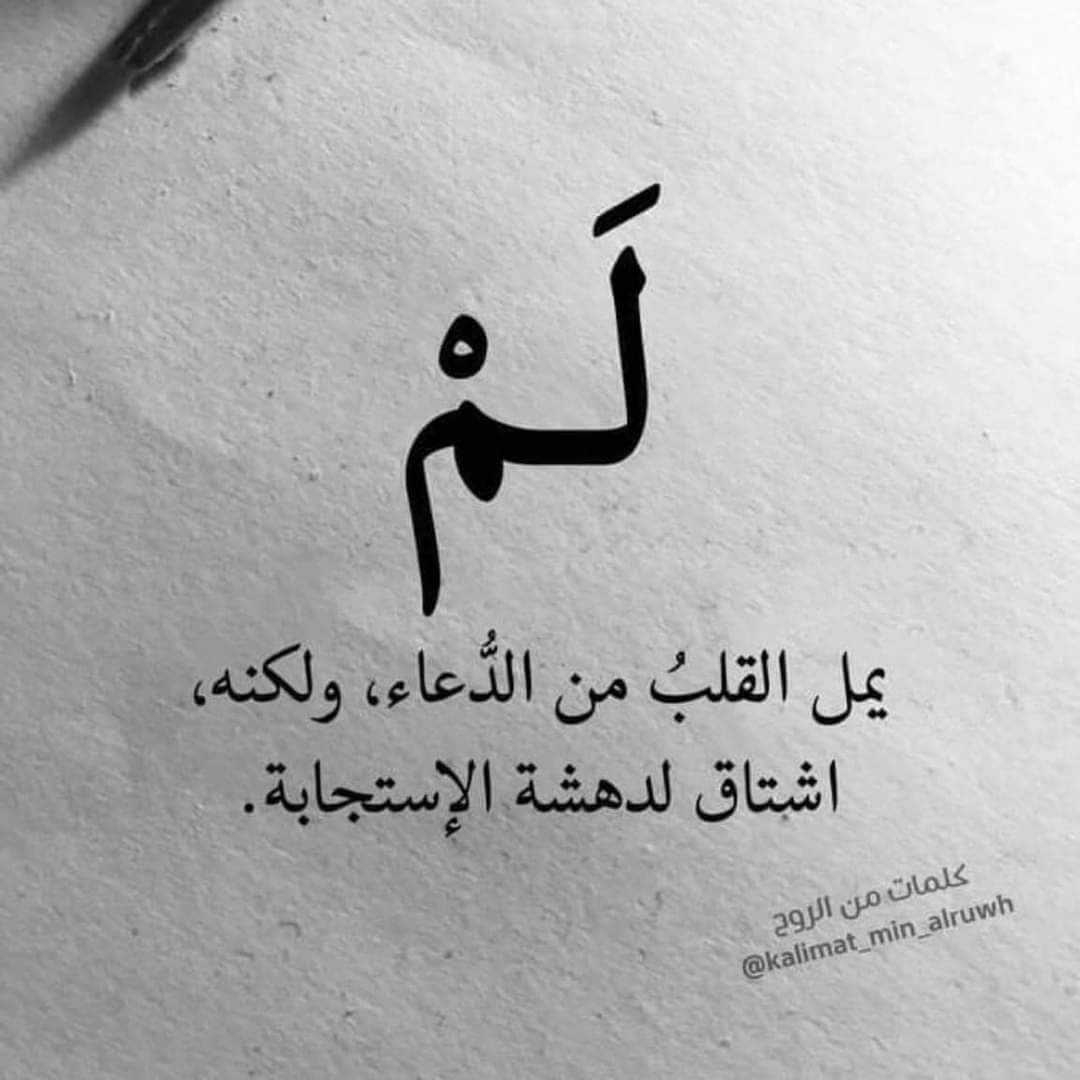 لَمْ
يمل القلبُ من الدُّعاء، ولكنه،
اشتاق لدهشة الإستجابة.
كلمات من الروح
@kalimat_min_alruwh